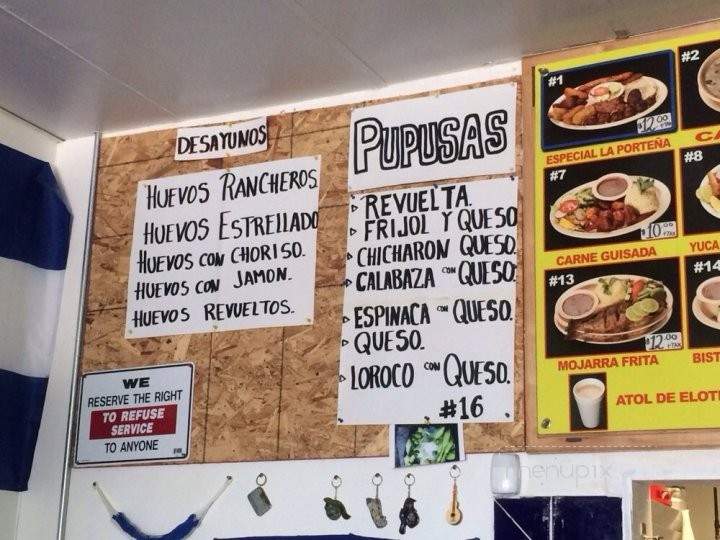 DESAYUNOS
HUEVOS RANCHEROS.
HUEVOS ESTRELLADO
HUEVOS CON CHORISO.
HUEVOS CON JAMON.
HUEVOS REVUELTOS.
WE
RESERVE THE RIGHT
TO REFUSE
SERVICE
TO ANYONE
PUPUSAS
REVUELTA.
FRIJOL Y QUESO
CHICHARON QUESO.
CALABAZA CON QUESO.
ESPINACA CON QUESO.
QUESO.
LOROCO CON QUESO.
#16
#1
12.00
ESPECIAL LA PORTEÑA
#2
CA
#7
10.00
+TAX
CARNE GUISADA
#8
YUCA
#13
12.00
+TAX
MOJARRA FRITA
#14
BIST
ATOL DE ELOT
menupix